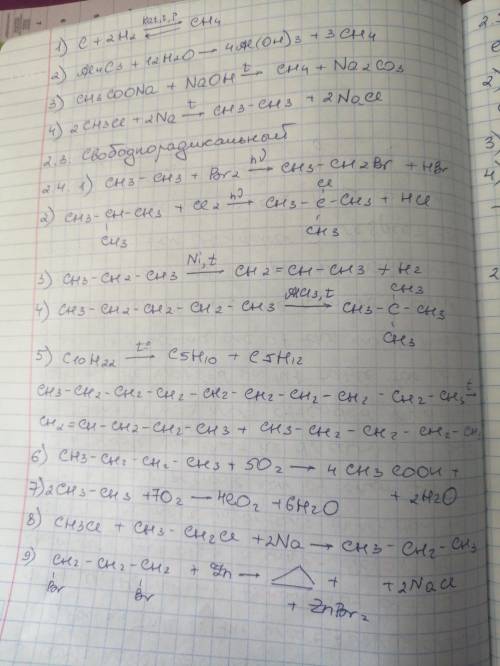 1) C + 2H2 ⇄ CH4 (кат, t, P)
2) Al4C3 + 12H2O → 4Al(OH)3 + 3CH4
3) CH3COONa + NaOH →t CH4 + Na2CO3
4) 2CH3Cl + 2Na →t CH3-CH3 + 2NaCl
2.3. Свободнорадикальный
2.4. 1) CH3-CH3 + Br2 →hν CH3-CH2Br + HBr
Cl
2) CH3-CH-CH3 + Cl2 →hν CH3-C-CH3 + HCl
CH3 CH3
3) CH3-CH2-CH3 →Ni,t CH2=CH-CH3 + H2
CH3
4) CH3-CH2-CH2-CH2-CH3 →AlCl3,t CH3-C-CH3
CH3
5) C10H22 →t° C5H10 + C5H12
CH3-CH2-CH2-CH2-CH2-CH2-CH2-CH2-CH2-CH3 →t
CH2=CH-CH2-CH2-CH3 + CH3-CH2-CH2-CH2-CH
6) CH3-CH2-CH2-CH3 + 5O2 → 4CH3COOH +
+ 2H2O
7) 2CH3-CH3 + 7O2 → 4CO2 + 6H2O
8) CH3Cl + CH3-CH2Cl + 2Na → CH3-CH2-CH3
+ 2NaCl
9) CH2-CH2-CH2 + Zn → △ +
Br Br + ZnBr2